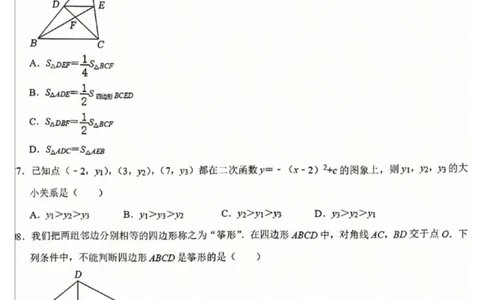 D E
F
B C
A. S△DEF=1/4S△BCF
B. S△ADE=1/2S四边形BCED
C. S△DBF=1/2S△BCF
D. S△ADC=S△AEB
7. 已知点(-2, y₁), (3, y₂), (7, y₃)都在二次函数y=-(x-2)²+c的图象上,则y₁, y₂, y₃的大
小关系是( )
A. y₁>y₂>y₃ B. y₁>y₃>y₂ C. y₂>y₁>y₃ D. y₃>y₂>y₁
8. 我们把两组邻边分别相等的四边形称之为“筝形”. 在四边形ABCD中,对角线AC, BD交于点O. 下
列条件中,不能判断四边形ABCD是筝形的是( )
D